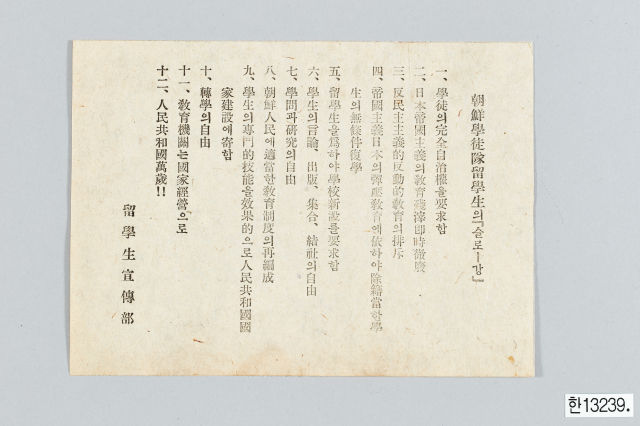 朝鮮學徒隊留學生의『슬로―강』
一、學徒의完全自治權을要求함
二、日本帝國主義의敎育殘滓卽時撤廢
三、反民主主義的反動的敎育의排斥
四、帝國主義日本의彈壓敎育에依하야除籍當한學
生의無條件復學
五、留學生을爲하야學校新設을要求함
六、學生의言論、出版、集合、結社의自由
七、學問과硏究의自由
八、朝鮮人民에適當한敎育制度의再編成
九、學生의專門的技能을效果的으로人民共和國國
家建設에寄함
十、轉學의自由
十一、敎育機關는國家經營으로
十二、人民共和國萬歲!!
留學生宣傳部
한13239.